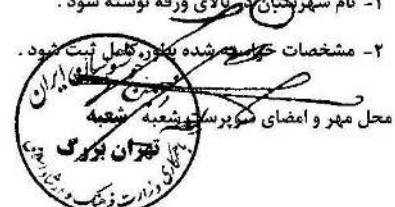 ۱- نام شهرستان در بالای ورقه نوشته شود .
۲- مشخصات خواسته شده بطور کامل ثبت شود .
محل مهر و امضای سرپرست شعبه
شعبه
تهران بزرگ
وزارت فرهنگ و